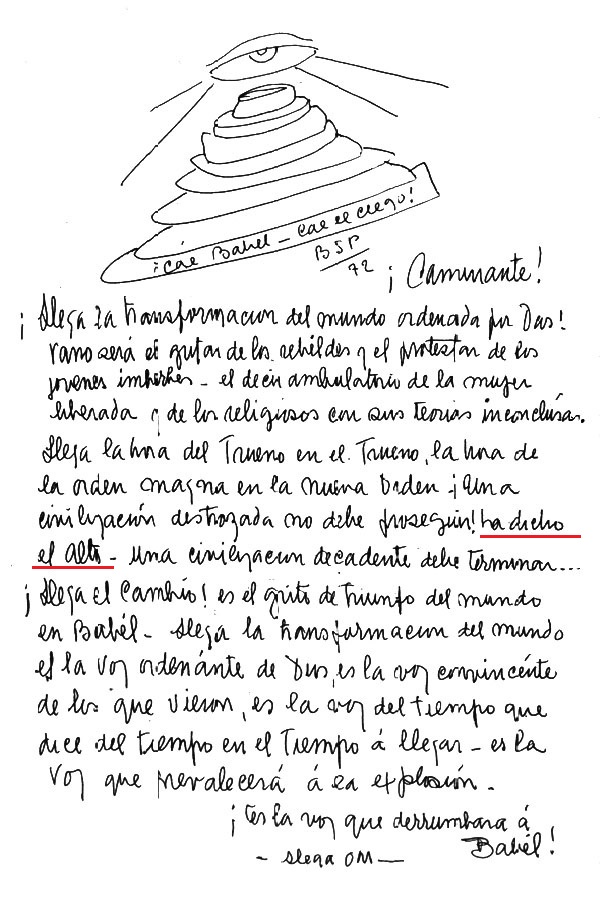 ¡Cae Babel - cae el ciego!
BSP
72
¡Caminante!
¡Llega la transformacion del mundo ordenada por Dios!
vano será el gritar de los rebeldes y el protestar de los
jovenes imberbes - el decir ambulatorio de la mujer
liberada y de los religiosos con sus teorias inconclusas.
Llega la hora del Trueno en el Trueno, la hora de
la orden magna en la nueva Orden ¡Una
civilización destrozada no debe proseguir! ha dicho
el Alto - una civilizacion decadente debe terminar...
¡Llega el Cambio! es el grito de triunfo del mundo
en Babél - Llega la transformacion del mundo
es la voz ordenánte de Dios, es la voz convincénte
de los que vieron, es la voz del tiempo que
dice del tiempo en el Tiempo á llegar - es la
voz que prevalecerá á la explosión.
¡es la voz que derrumbara á
Babél!
- llega OM -